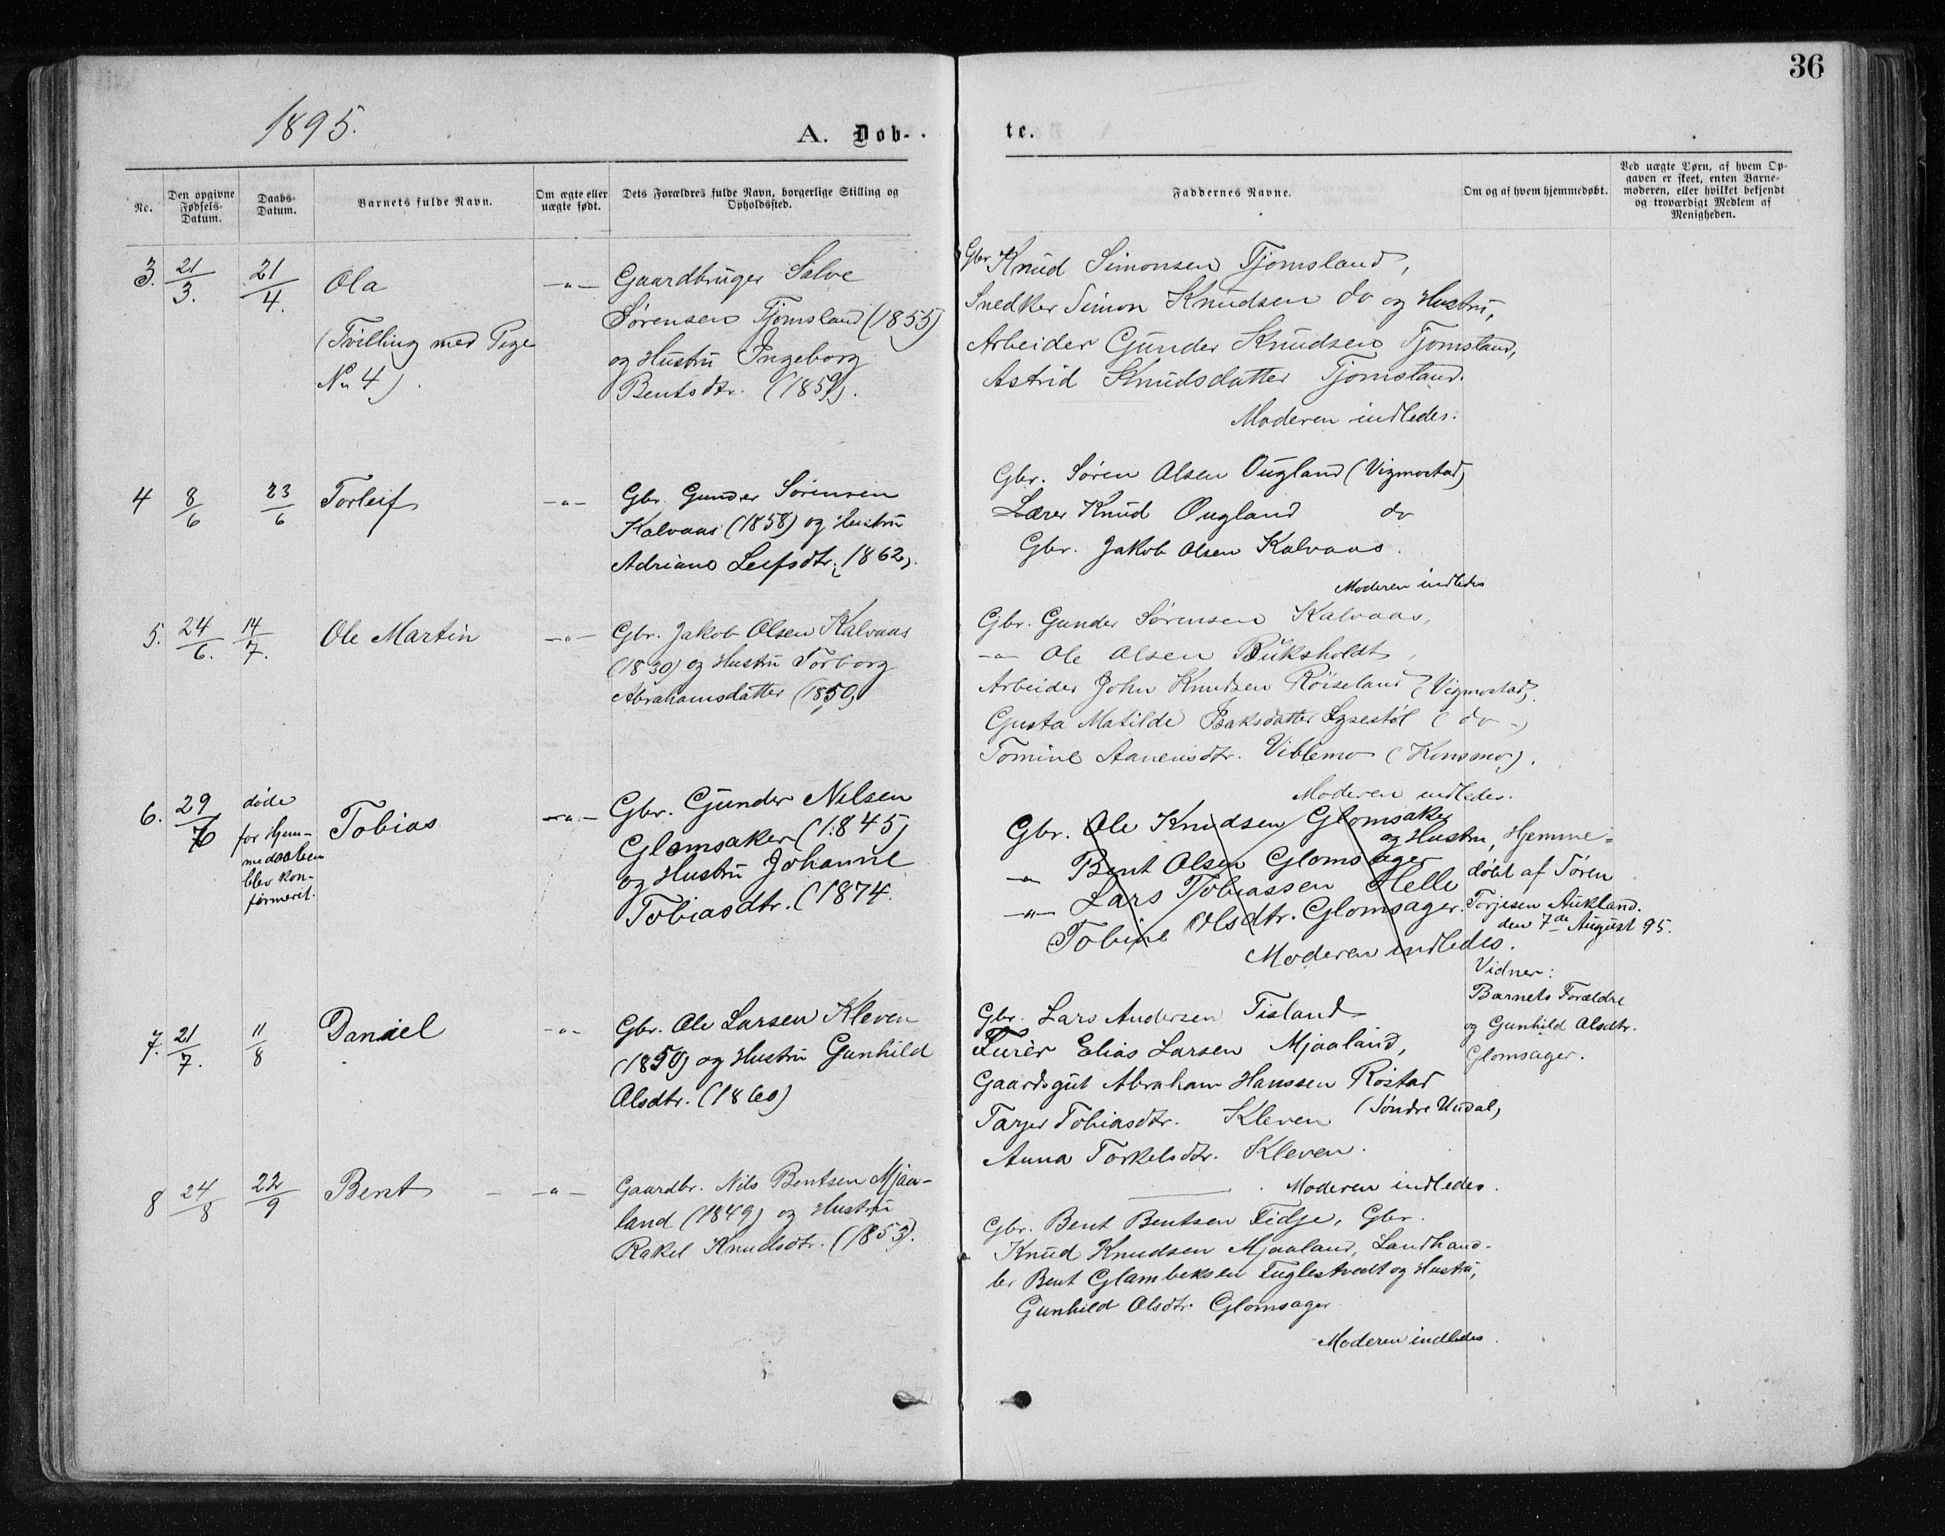 36
1895.
A. Døb-
te.
No.
Den opgivne
Fødsels-
Datum.
Daabs-
Datum.
Barnets fulde Navn.
Om ægte eller
uægte født.
Dets Forældres fulde Navn, borgerlige Stilling og
Opholdssted.
Faddernes Navne.
Om og af hvem hjemmedøbt.
Ved uægte Børn, af hvem Op-
gaven er skeet, enten Barne-
moderen, eller hvilket bekjendt
og troværdigt Medlem af
Menigheden.
3. 21/3. 21/4. Ola
(Tvilling med Pige
No 4).
—"—
Gaardbruger Salve
Sørensen Tjomsland (1855)
og Hustru Ingeborg
Bentsdtr. (1859).
Gbr. Knud Simonsen Tjomsland,
Snedker Simon Knudsen do og Hustru,
Arbeider Gunder Knudsen Tjomsland,
Astrid Knudsdatter Tjomsland.
Moderen indledes.
4 8/6 23/6 Torleif
—"—
Gbr. Gunder Sørensen
Kalvaas (1858) og Hustru
Adriane Leifsdtr. (1862).
Gbr. Søren Olsen Ougland (Vigmostad)
Lærer Knud Ougland do
Gbr. Jakob Olsen Kalvaas.
Moderen indledes
5. 24/6. 14/7. Ole Martin
—"—
Gbr. Jakob Olsen Kalvaas
(1830) og Hustru Torborg
Abrahamsdatter (1850)
Gbr. Gunder Sørensen Kalvaas,
—"— Ole Olsen Buksholdt,
Arbeider John Knudsen Røiseland (Vigmostad),
Gusta Matilde Isaksdatter Lysestøl (do-)
Tomine Aanensdtr. Viblemo (Konsmo).
Moderen indledes.
6. 29/7 døde
for Hjem-
medaaben
blev kon-
firmeret.
Tobias
—"—
Gbr. Gunder Nilsen
Glomsaker (1845)
og Hustru Johanne
Tobiasdtr. (1874.
Gbr. Ole Knudsen Glomsaker
og Hustru,
—"— Bent Olsen Glomsager
—"— Lars Tobiassen Helle
Tobine Olsdtr. Glomsager.
Moderen indledes.
Hjemme-
døbt af Søren
Torjesen Aukland.
den 7de August 95.
Vidner:
Barnets Forældre
og Gunhild Olsdtr.
Glomsager.
7. 21/7. 11/8 Daniel
—"—
Gbr. Ole Larsen Kleven
(1850) og Hustru Gunhild
Olsdtr. (1860)
Gbr. Lars Andersen Tisland
Furér Elias Larsen Mjaaland,
Gaardsgut Abraham Hanssen Røstad
(Søndre Undal)
Tarjer Tobiasdtr. Kleven
Anna Torkelsdtr. Kleven.
Moderen indledes.
8 24/8 22/9 Bent
—"—
Gaardbr. Nils Bentsen Mjaa-
land (1849) og Hustru
Rakel Knudsdtr. (1853).
Gbr. Bent Bentsen Fidje, Gbr.
Knud Knudsen Mjaaland, Landhand-
ler Bent Glambeksen Fuglestvedt og Hustru,
Gunhild Olsdtr. Glomsager
Moderen indledes.